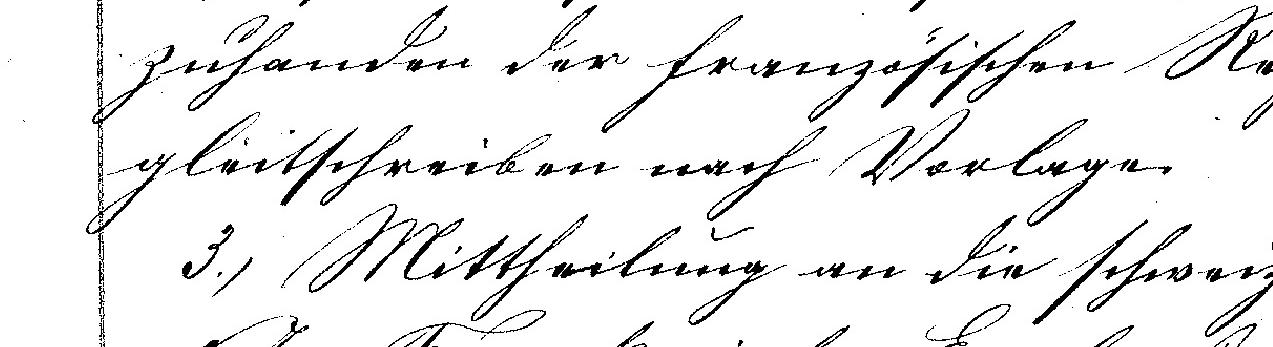 zuhanden der französischen Re
gleitschreiben nach Vorlage.
3., Mittheilung an die schweiz